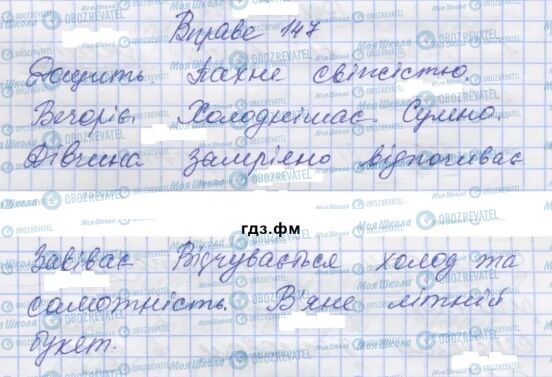 Вправа 147
Дощить. Пахне свіжістю.
Вечоріє. Холоднішає. Сумно.
Дівчина замріяно відпочиває
гдз.фм
Завіває. Відчувається холод та
самотність. В'яне літній
букет.